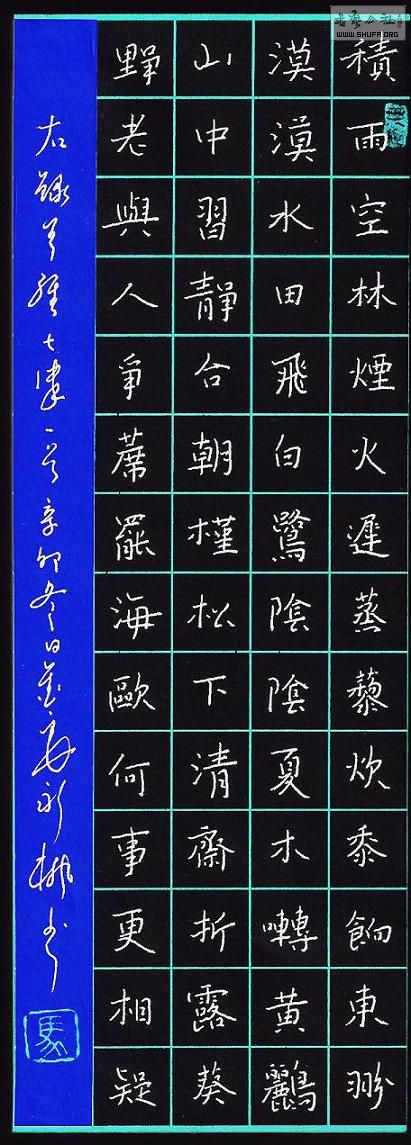 书艺公社
WWW.SHUFA.ORG
積雨空林煙火遲蒸藜炊黍餉東
漠漠水田飛白鷺陰陰夏木囀黃鸝
山中習靜合朝槿松下清齋折露葵
野老與人爭蓆罷海歐何事更相疑
右錄王維七律一首辛卯冬日永彬書
馬